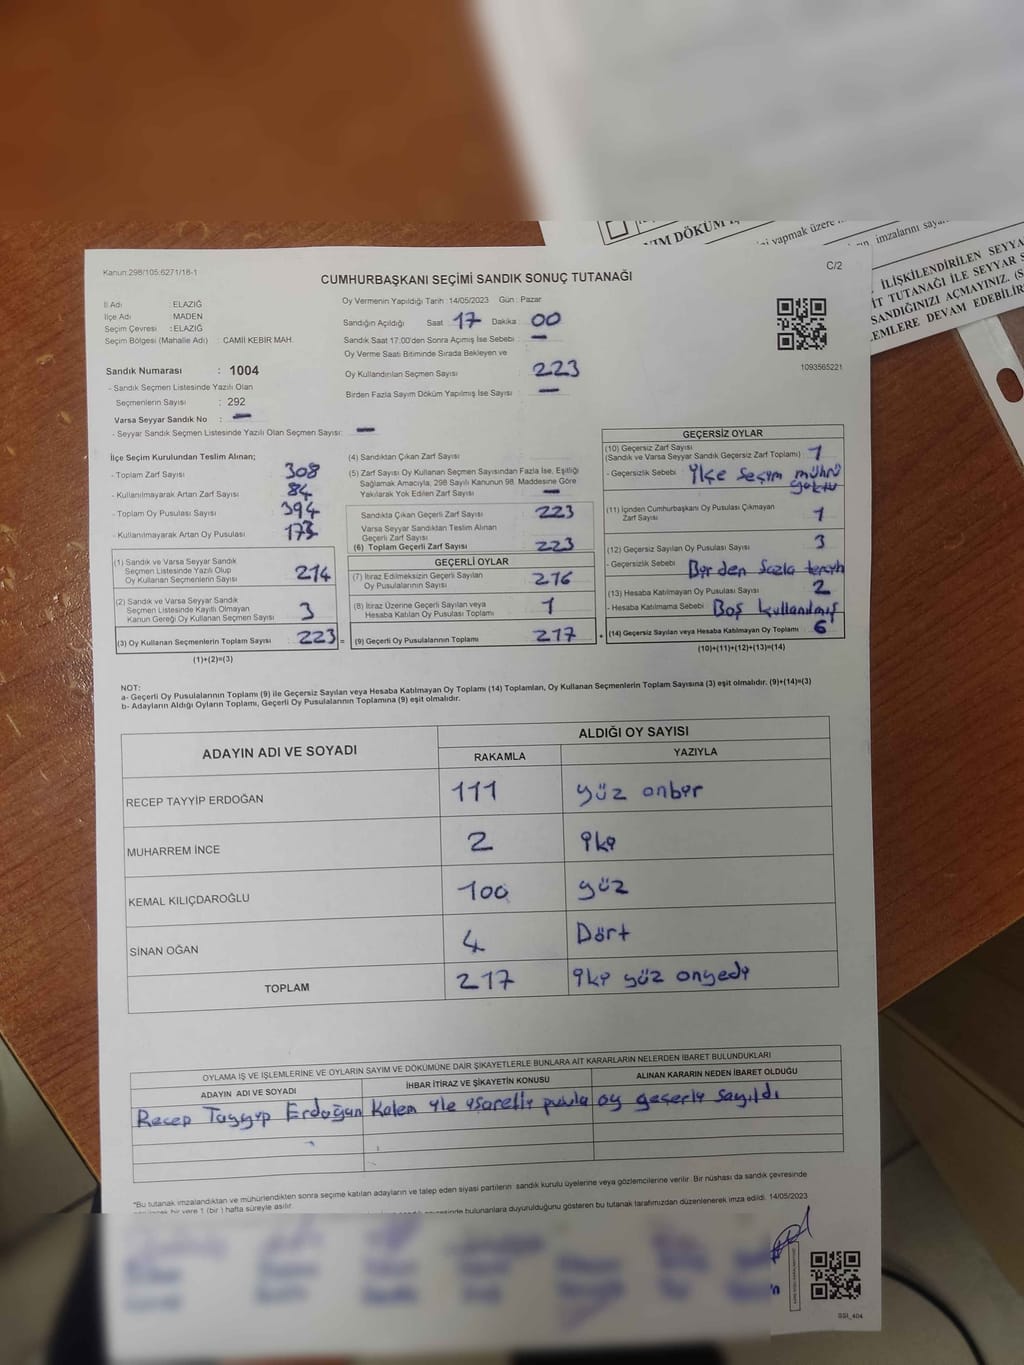 YIM DÖKÜM İŞ
şi yapmak üzere
ın imzalarını sayar
İLİŞKİLENDİRİLEN SEYYA
İT TUTANAĞI İLE SEYYAR S
SANDIĞINIZI AÇMAYINIZ. (S
EMLERE DEVAM EDEBİLİR
Kanun:298/105:6271/18-1
CUMHURBAŞKANI SEÇİMİ SANDIK SONUÇ TUTANAĞI
C/2
İl Adı : ELAZIĞ
İlçe Adı : MADEN
Seçim Çevresi : ELAZIĞ
Seçim Bölgesi (Mahalle Adı) : CAMİİ KEBİR MAH.
Sandık Numarası : 1004
- Sandık Seçmen Listesinde Yazılı Olan
Seçmenlerin Sayısı : 292
Varsa Seyyar Sandık No : —
- Seyyar Sandık Seçmen Listesinde Yazılı Olan Seçmen Sayısı: —
Oy Vermenin Yapıldığı Tarih :14/05/2023 Gün : Pazar
Sandığın Açıldığı Saat : 17 Dakika : 00
Sandık Saat 17.00'den Sonra Açımış İse Sebebi : —
Oy Verme Saati Bitiminde Sırada Bekleyen ve
Oy Kullandırılan Seçmen Sayısı : 223
Birden Fazla Sayım Döküm Yapılmış İse Sayısı : —
1093565221
İlçe Seçim Kurulundan Teslim Alınan;
- Toplam Zarf Sayısı : 308
- Kullanılmayarak Artan Zarf Sayısı : 84
- Toplam Oy Pusulası Sayısı : 394
- Kullanılmayarak Artan Oy Pusulası : 173
(1) Sandık ve Varsa Seyyar Sandık
Seçmen Listesinde Yazılı Olup
Oy Kullanan Seçmenlerin Sayısı : 214
(2) Sandık ve Varsa Seyyar Sandık
Seçmen Listesinde Kayıtlı Olmayan
Kanun Gereği Oy Kullanan Seçmen Sayısı : 3
(3) Oy Kullanan Seçmenlerin Toplam Sayısı : 223 =
(1)+(2)=(3)
(4) Sandıktan Çıkan Zarf Sayısı :
(5) Zarf Sayısı Oy Kullanan Seçmen Sayısından Fazla İse, Eşitliği
Sağlamak Amacıyla; 298 Sayılı Kanunun 98. Maddesine Göre
Yakılarak Yok Edilen Zarf Sayısı : —
Sandıkta Çıkan Geçerli Zarf Sayısı : 223
Varsa Seyyar Sandıktan Teslim Alınan
Geçerli Zarf Sayısı :
(6) Toplam Geçerli Zarf Sayısı : 223
GEÇERLİ OYLAR
(7) İtiraz Edilmeksizin Geçerli Sayılan
Oy Pusulalarının Sayısı : 216
(8) İtiraz Üzerine Geçerli Sayılan veya
Hesaba Katılan Oy Pusulası Toplamı : 1
(9) Geçerli Oy Pusulalarının Toplamı : 217 +
GEÇERSİZ OYLAR
(10) Geçersiz Zarf Sayısı
(Sandık ve Varsa Seyyar Sandık Geçersiz Zarf Toplamı) : 1
- Geçersizlik Sebebi : ilçe seçim mührü
yoktu
(11) İçinden Cumhurbaşkanı Oy Pusulası Çıkmayan
Zarf Sayısı : 1
(12) Geçersiz Sayılan Oy Pusulası Sayısı : 3
- Geçersizlik Sebebi : Birden fazla tercih
(13) Hesaba Katılmayan Oy Pusulası Sayısı : 2
- Hesaba Katılmama Sebebi : Boş kullanılmış
(14) Geçersiz Sayılan veya Hesaba Katılmayan Oy Toplamı : 6
(10)+(11)+(12)+(13)=(14)
NOT:
a- Geçerli Oy Pusulalarının Toplamı (9) ile Geçersiz Sayılan veya Hesaba Katılmayan Oy Toplamı (14) Toplamları, Oy Kullanan Seçmenlerin Toplam Sayısına (3) eşit olmalıdır. (9)+(14)=(3)
b- Adayların Aldığı Oyların Toplamı, Geçerli Oy Pusulalarının Toplamına (9) eşit olmalıdır.
ADAYIN ADI VE SOYADI
ALDIĞI OY SAYISI
RAKAMLA YAZIYLA
RECEP TAYYİP ERDOĞAN 111 yüz onbir
MUHARREM İNCE 2 iki
KEMAL KILIÇDAROĞLU 100 yüz
SİNAN OĞAN 4 Dört
TOPLAM 217 iki yüz onyedi
OYLAMA İŞ VE İŞLEMLERİNE VE OYLARIN SAYIM VE DÖKÜMÜNE DAİR ŞİKAYETLERLE BUNLARA AİT KARARLARIN NELERDEN İBARET BULUNDUKLARI
ADAYIN ADI VE SOYADI İHBAR İTİRAZ VE ŞİKAYETİN KONUSU ALINAN KARARIN NEDEN İBARET OLDUĞU
Recep Tayyip Erdoğan Kalem ile işaretli pusula oy geçerli sayıldı
*Bu tutanak imzalandıktan ve mühürlendikten sonra seçime katılan adayların ve talep eden siyasi partilerin sandık kurulu üyelerine veya gözlemcilerine verilir. Bir nüshası da sandık çevresinde
bir yere 1 (bir) hafta süreyle asılır.
bulunanlara duyurulduğunu gösteren bu tutanak tarafımızdan düzenlenerek imza edildi. 14/05/2023
SSI_404